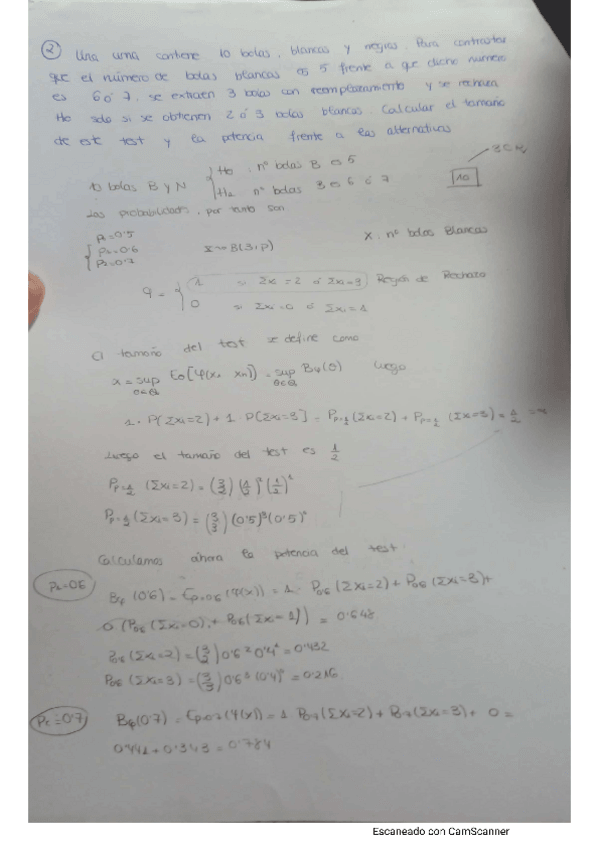 ② Una urna contiene 10 bolas, blancas y negras. Para contrastar
que el número de bolas blancas es 5 frente a que dicho numero
es 6 ó 7, se extraen 3 bolas con reemplazamiento y se rechaza
Ho solo si se obtienen 2 ó 3 bolas blancas. Calcular el tamaño
de este test y la potencia frente a las alternativas
3 CR
10 bolas B y N { Ho: nº bolas B es 5
H1: nº bolas B es 6 ó 7
10
Las probabilidades, por tanto son
P1=0.5
P2=0.6
P2=0.7
X~B(3,P)
X: nº bolas Blancas
φ = { 1 si Σxi=2 ó Σxi=3 Región de Rechazo
0 si Σxi=0 ó Σxi=1
El tamaño del test se define como
α = sup E0[φ(x1, xn)] = sup Bφ(θ) luego
θ∈Θ0 θ∈Θ0
1. P[Σxi=2] + 1. P[Σxi=3] = Pp=1/2 (Σxi=2) + Pp=1/2 (Σxi=3) = 1/2 = α
Luego el tamaño del test es 1/2
Pp=1/2 (Σxi=2) = (3 2) (1/2)² (1/2)¹
Pp=1/2 (Σxi=3) = (3 3) (0'5)³ (0'5)⁰
Calculamos ahora la potencia del test.
P2=0.6 Bφ(0'6) = Ep=0.6 (φ(x)) = 1. P0.6 (Σxi=2) + P0.6 (Σxi=3) +
0 (P0.6 (Σxi=0) + P0.6 (Σxi=1)) = 0'648
P0.6 (Σxi=2) = (3 2) 0'6² 0'4¹ = 0'432
P0.6 (Σxi=3) = (3 3) 0'6³ (0'4)⁰ = 0'216
P2=0.7 Bφ(0.7) = Ep=0.7 (φ(x)) = 1 P0.7 (Σxi=2) + P0.7 (Σxi=3) + 0 =
0'441 + 0'343 = 0'784
Escaneado con CamScanner